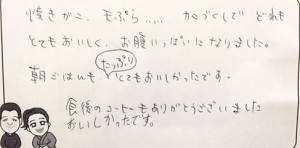 焼きがに、天ぷら..... かにづくしで どれも
とてもおいしく、お腹いっぱいになりました。
朝ごはんも たっぷり とてもおいしかったです。
食後のコーヒーもありがとうございました
おいしかったです。